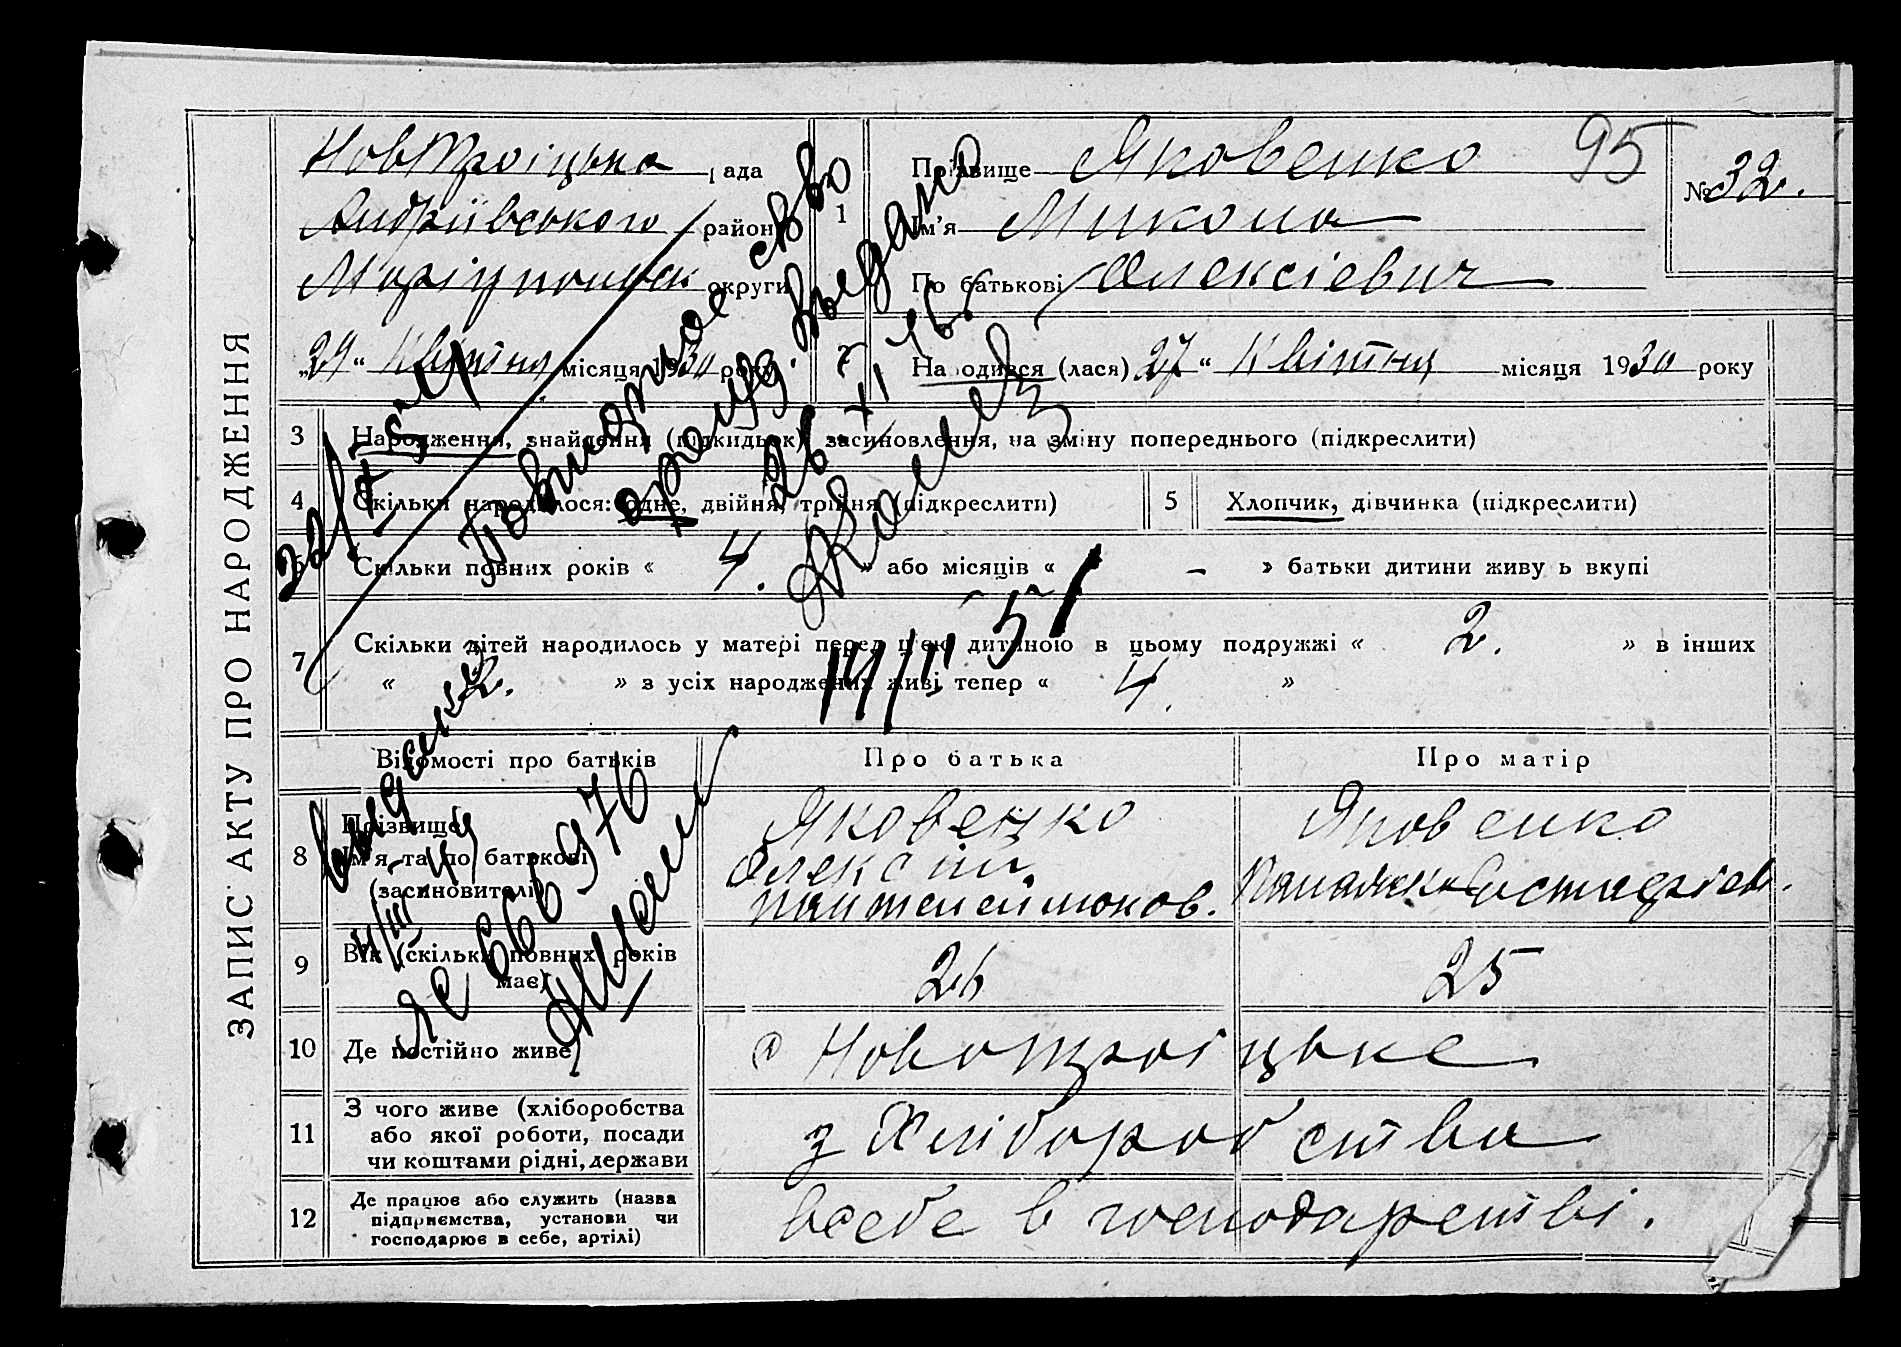 ЗАПИС АКТУ ПРО НАРОДЖЕННЯ
Новтроіцька рада
Андріївського району
Маріупольськ округи
„29“ Квітня місяця 1930 року
1
Прізвище Яковенко 95
Ім’я Микола
По батькові Олексієвич
№ 32.
2 Народився (лася) 27 “ Квітня місяця 1930 року
3 Народження, знайдення (підкидьок) засиновлення, на зміну попереднього (підкреслити)
4 Скільки народилося: одне, двійня, трійня (підкреслити)
5 Хлопчик, дівчинка (підкреслити)
6 Скільки повних років « 4. » або місяців « – » батьки дитини живуть вкупі
7 Скільки дітей народилось у матері перед цією дитиною в цьому подружжі « 2. » в інших
« 2. » з усіх народжених живі тепер « 4. »
Відомості про батьків Про батька Про матір
8 Прізвище
Ім’я та по батькові
(засиновителі)
Яковенко
Олексій
Пантелеймонов.
Яковенко
9 Вік (скільки повних років має)
26 25
10 Де постійно живе
с Новотроіцьке
11 З чого живе (хліборобства
або якої роботи, посади
чи коштами рідні, держави
з Хліборобства
12 Де працює або служить (назва
підприємства, установи чи
господарює в себе, артілі)
всебе в господарстві.
Повторное св-во
о рожд. выдано
26 XI 46 г
14/II 51
№ 666976